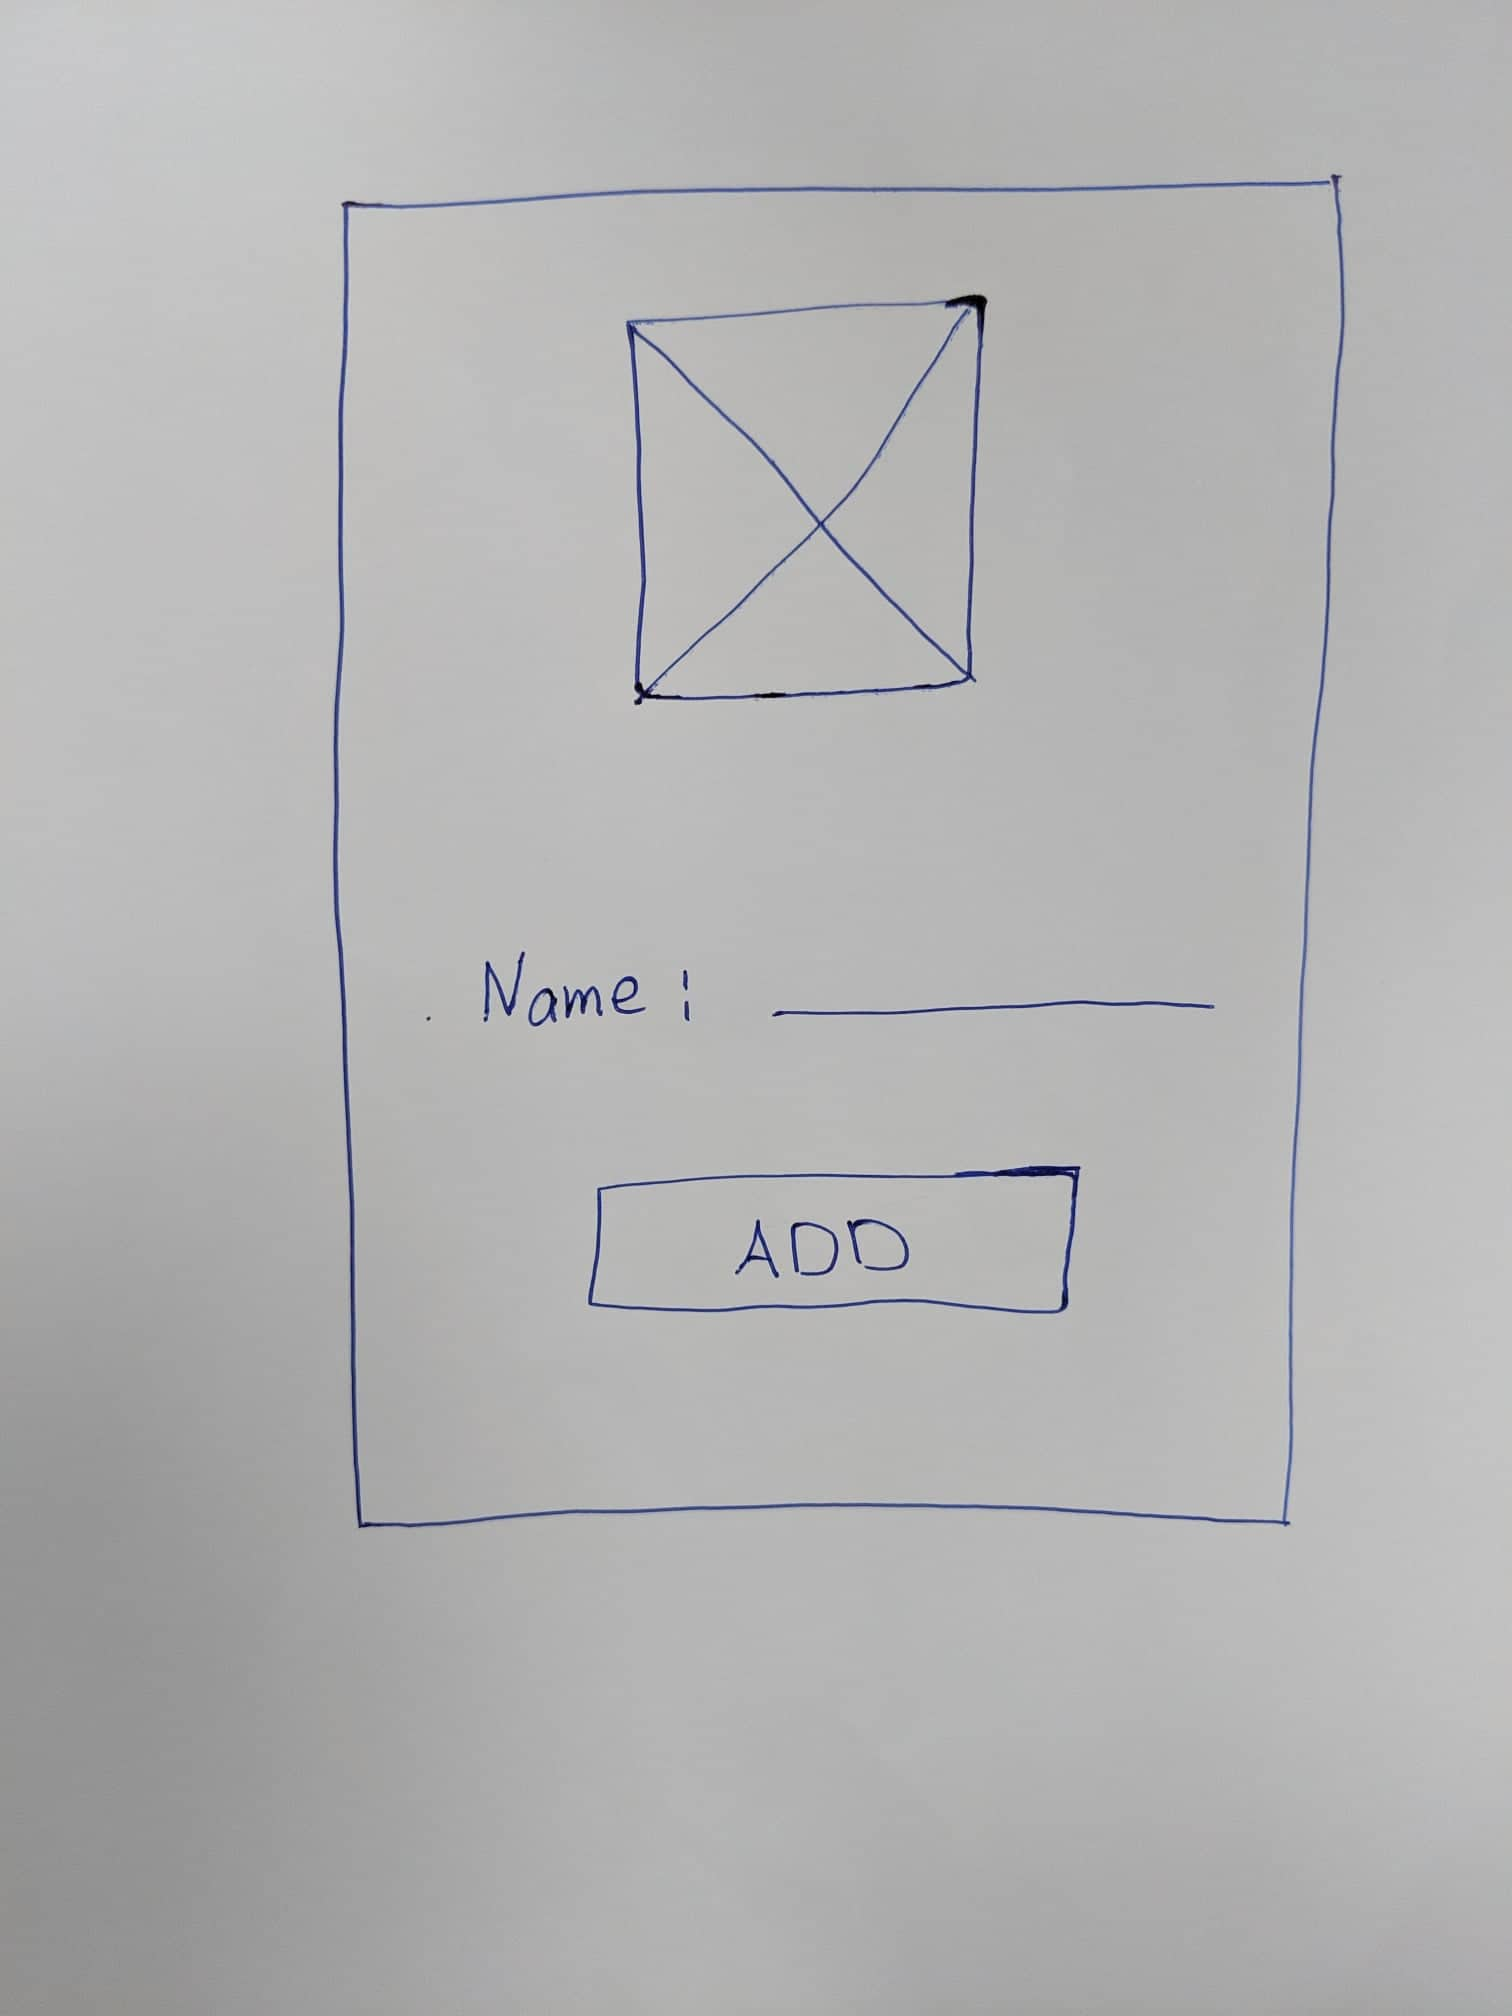 Name :
ADD